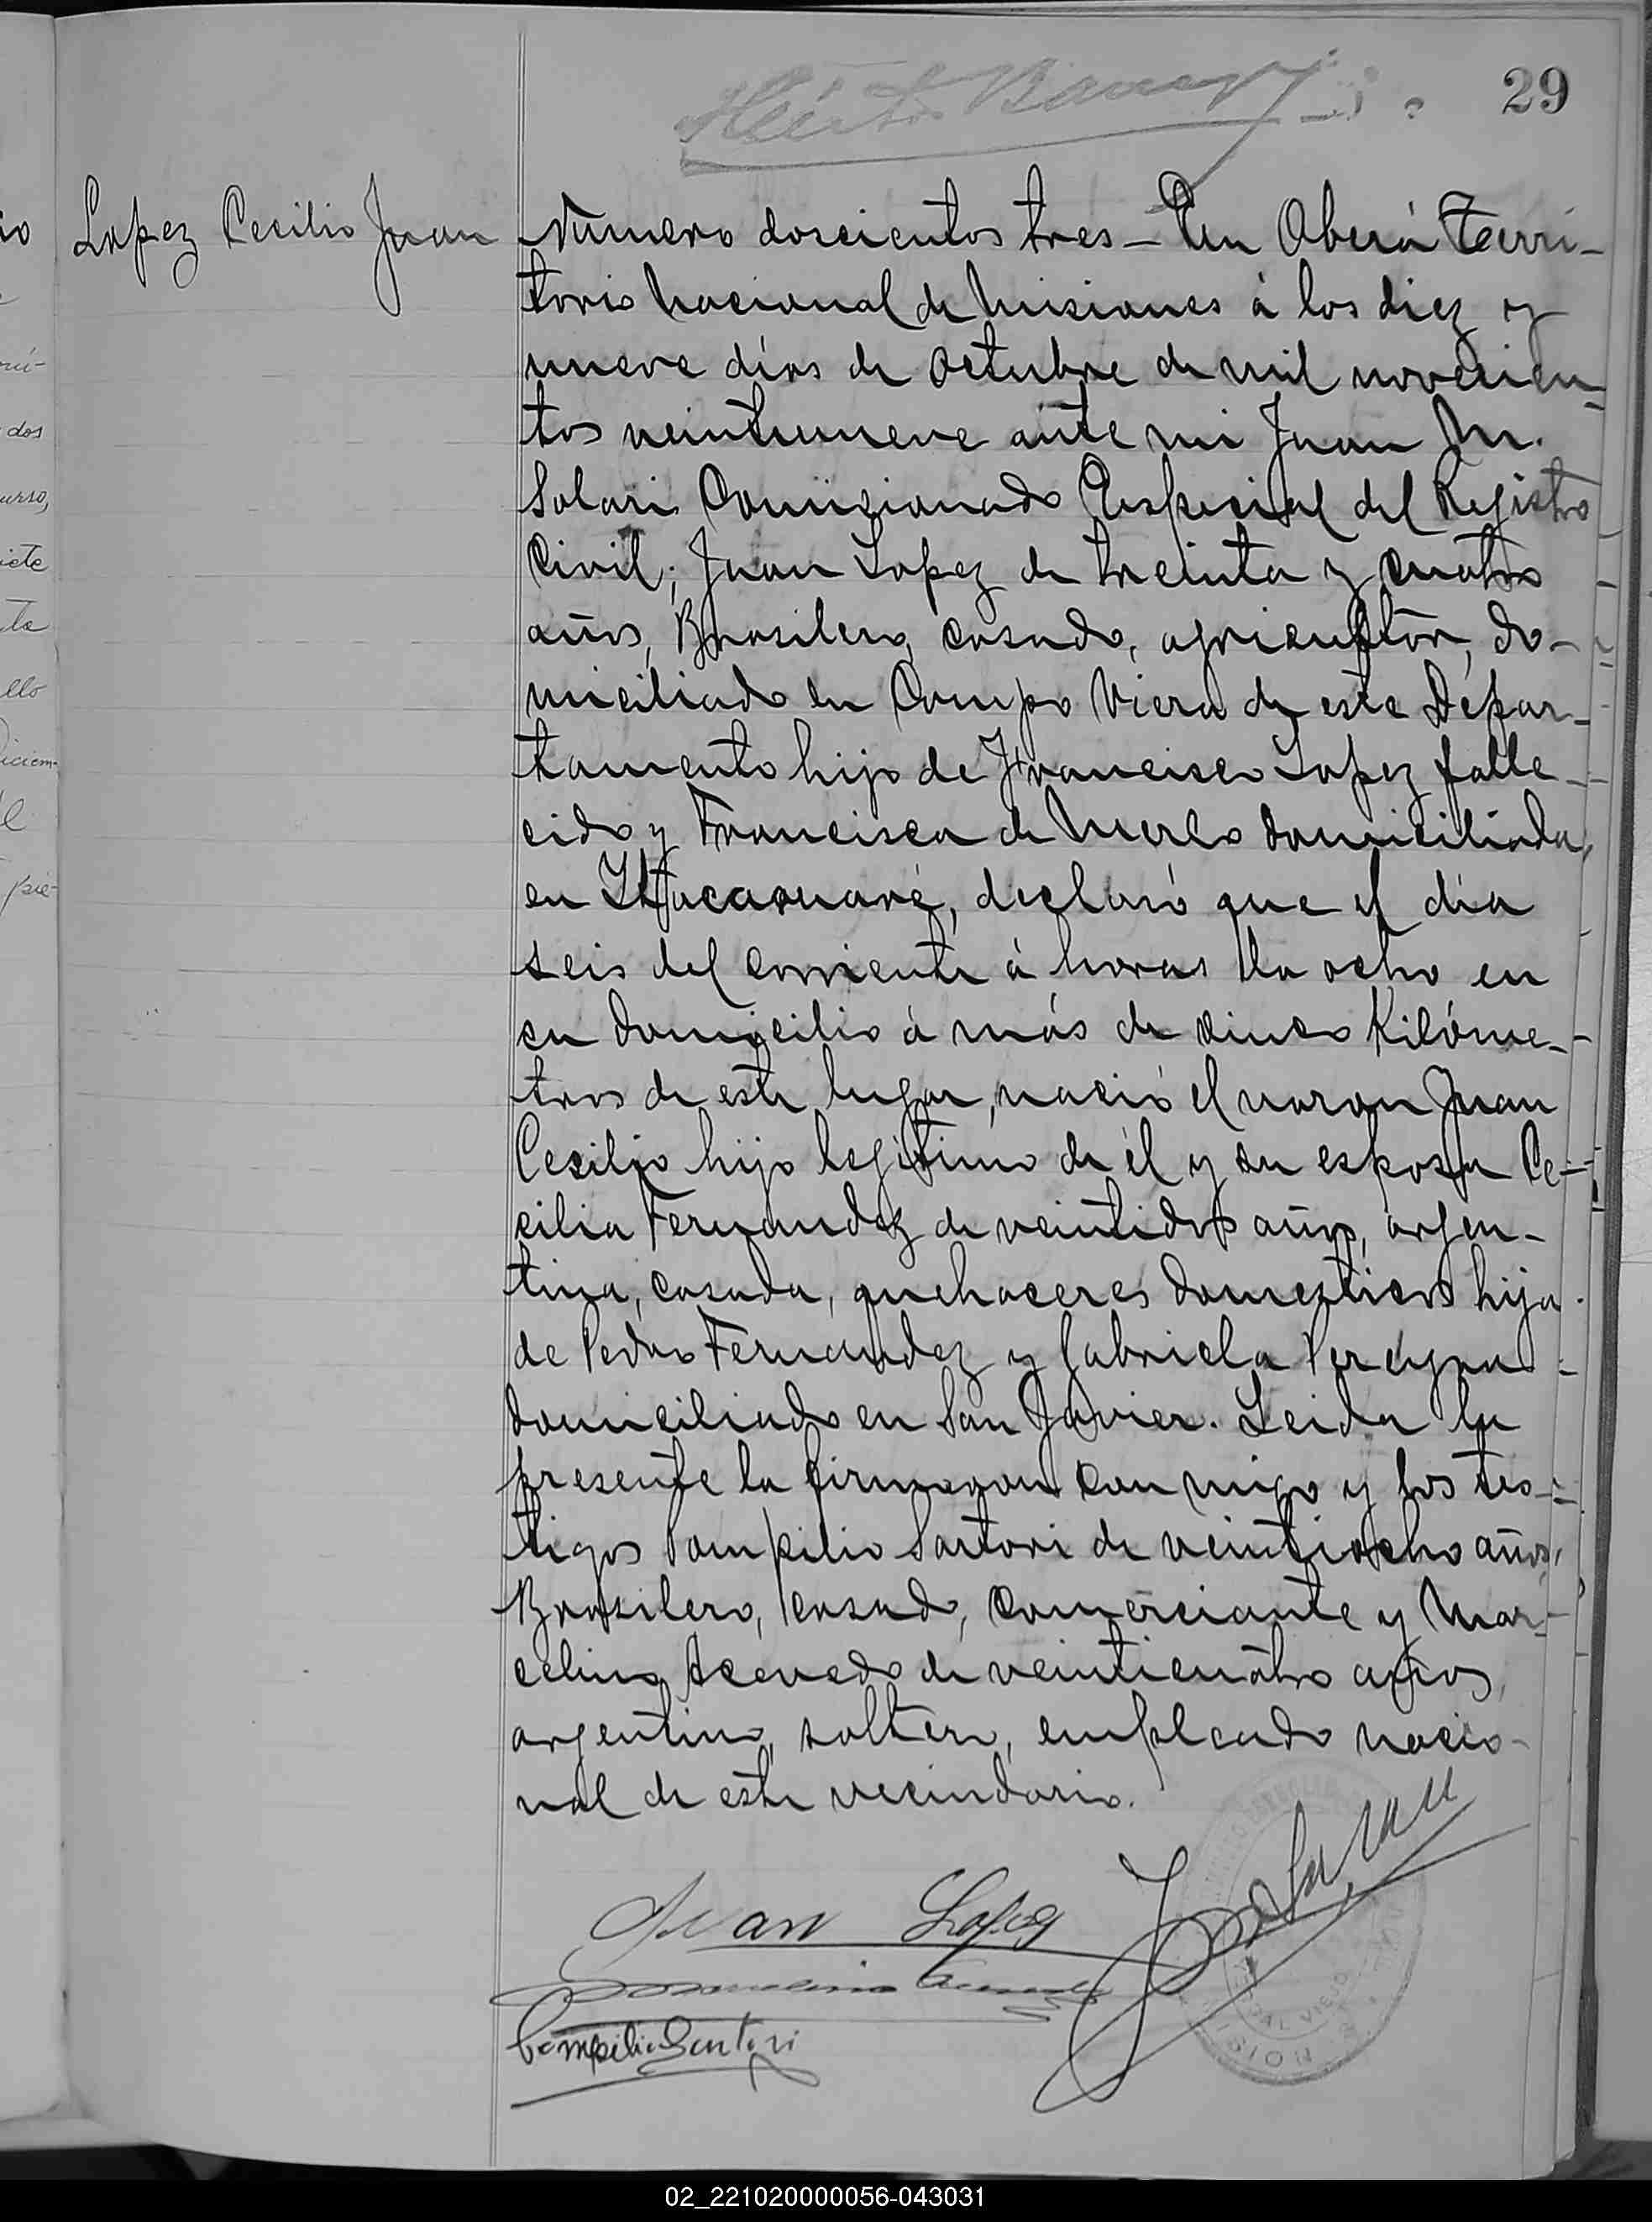 29
Lopez Cecilio Juan
Número doscientos tres — En Oberá Terri-
torio Nacional de Misiones á los diez y
nueve días de octubre de mil novecien-
tos veintinueve ante mi Juan M.
Solari Comisionado Especial del Registro
Civil; Juan Lopez de treinta y cuatro
años, Brasilero, casado, agricultor, do-
miciliado en Campo Viera de este Depar-
tamento hijo de Francisco Lopez falle-
cido y Francisca de Merlo domiciliada,
en Itacaruaré, declaró que el día
seis del corriente á horas la ocho en
su domicilio á más de cinco Kilóme-
tros de este lugar, nació el varon Juan
Cecilio hijo legitimo de él y su esposa Ce-
cilia Fernandez de veintidos años, argen-
tina, casada, quehaceres domesticos hija
de Pedro Fernandez y Gabriela Pereyra
domiciliado en San Javier. Leida la
presente la firmaron con migo y los tes-
tigos Pompilio Sartori de veintiocho años,
Brasilero, casado, comerciante y Mar-
celino Acevedo de veinticuatro años,
argentino, soltero, empleado nacio-
nal de este vecindario.
Juan Lopez
Marcelino Acevedo
Pompilio Sartori
02_221020000056-043031